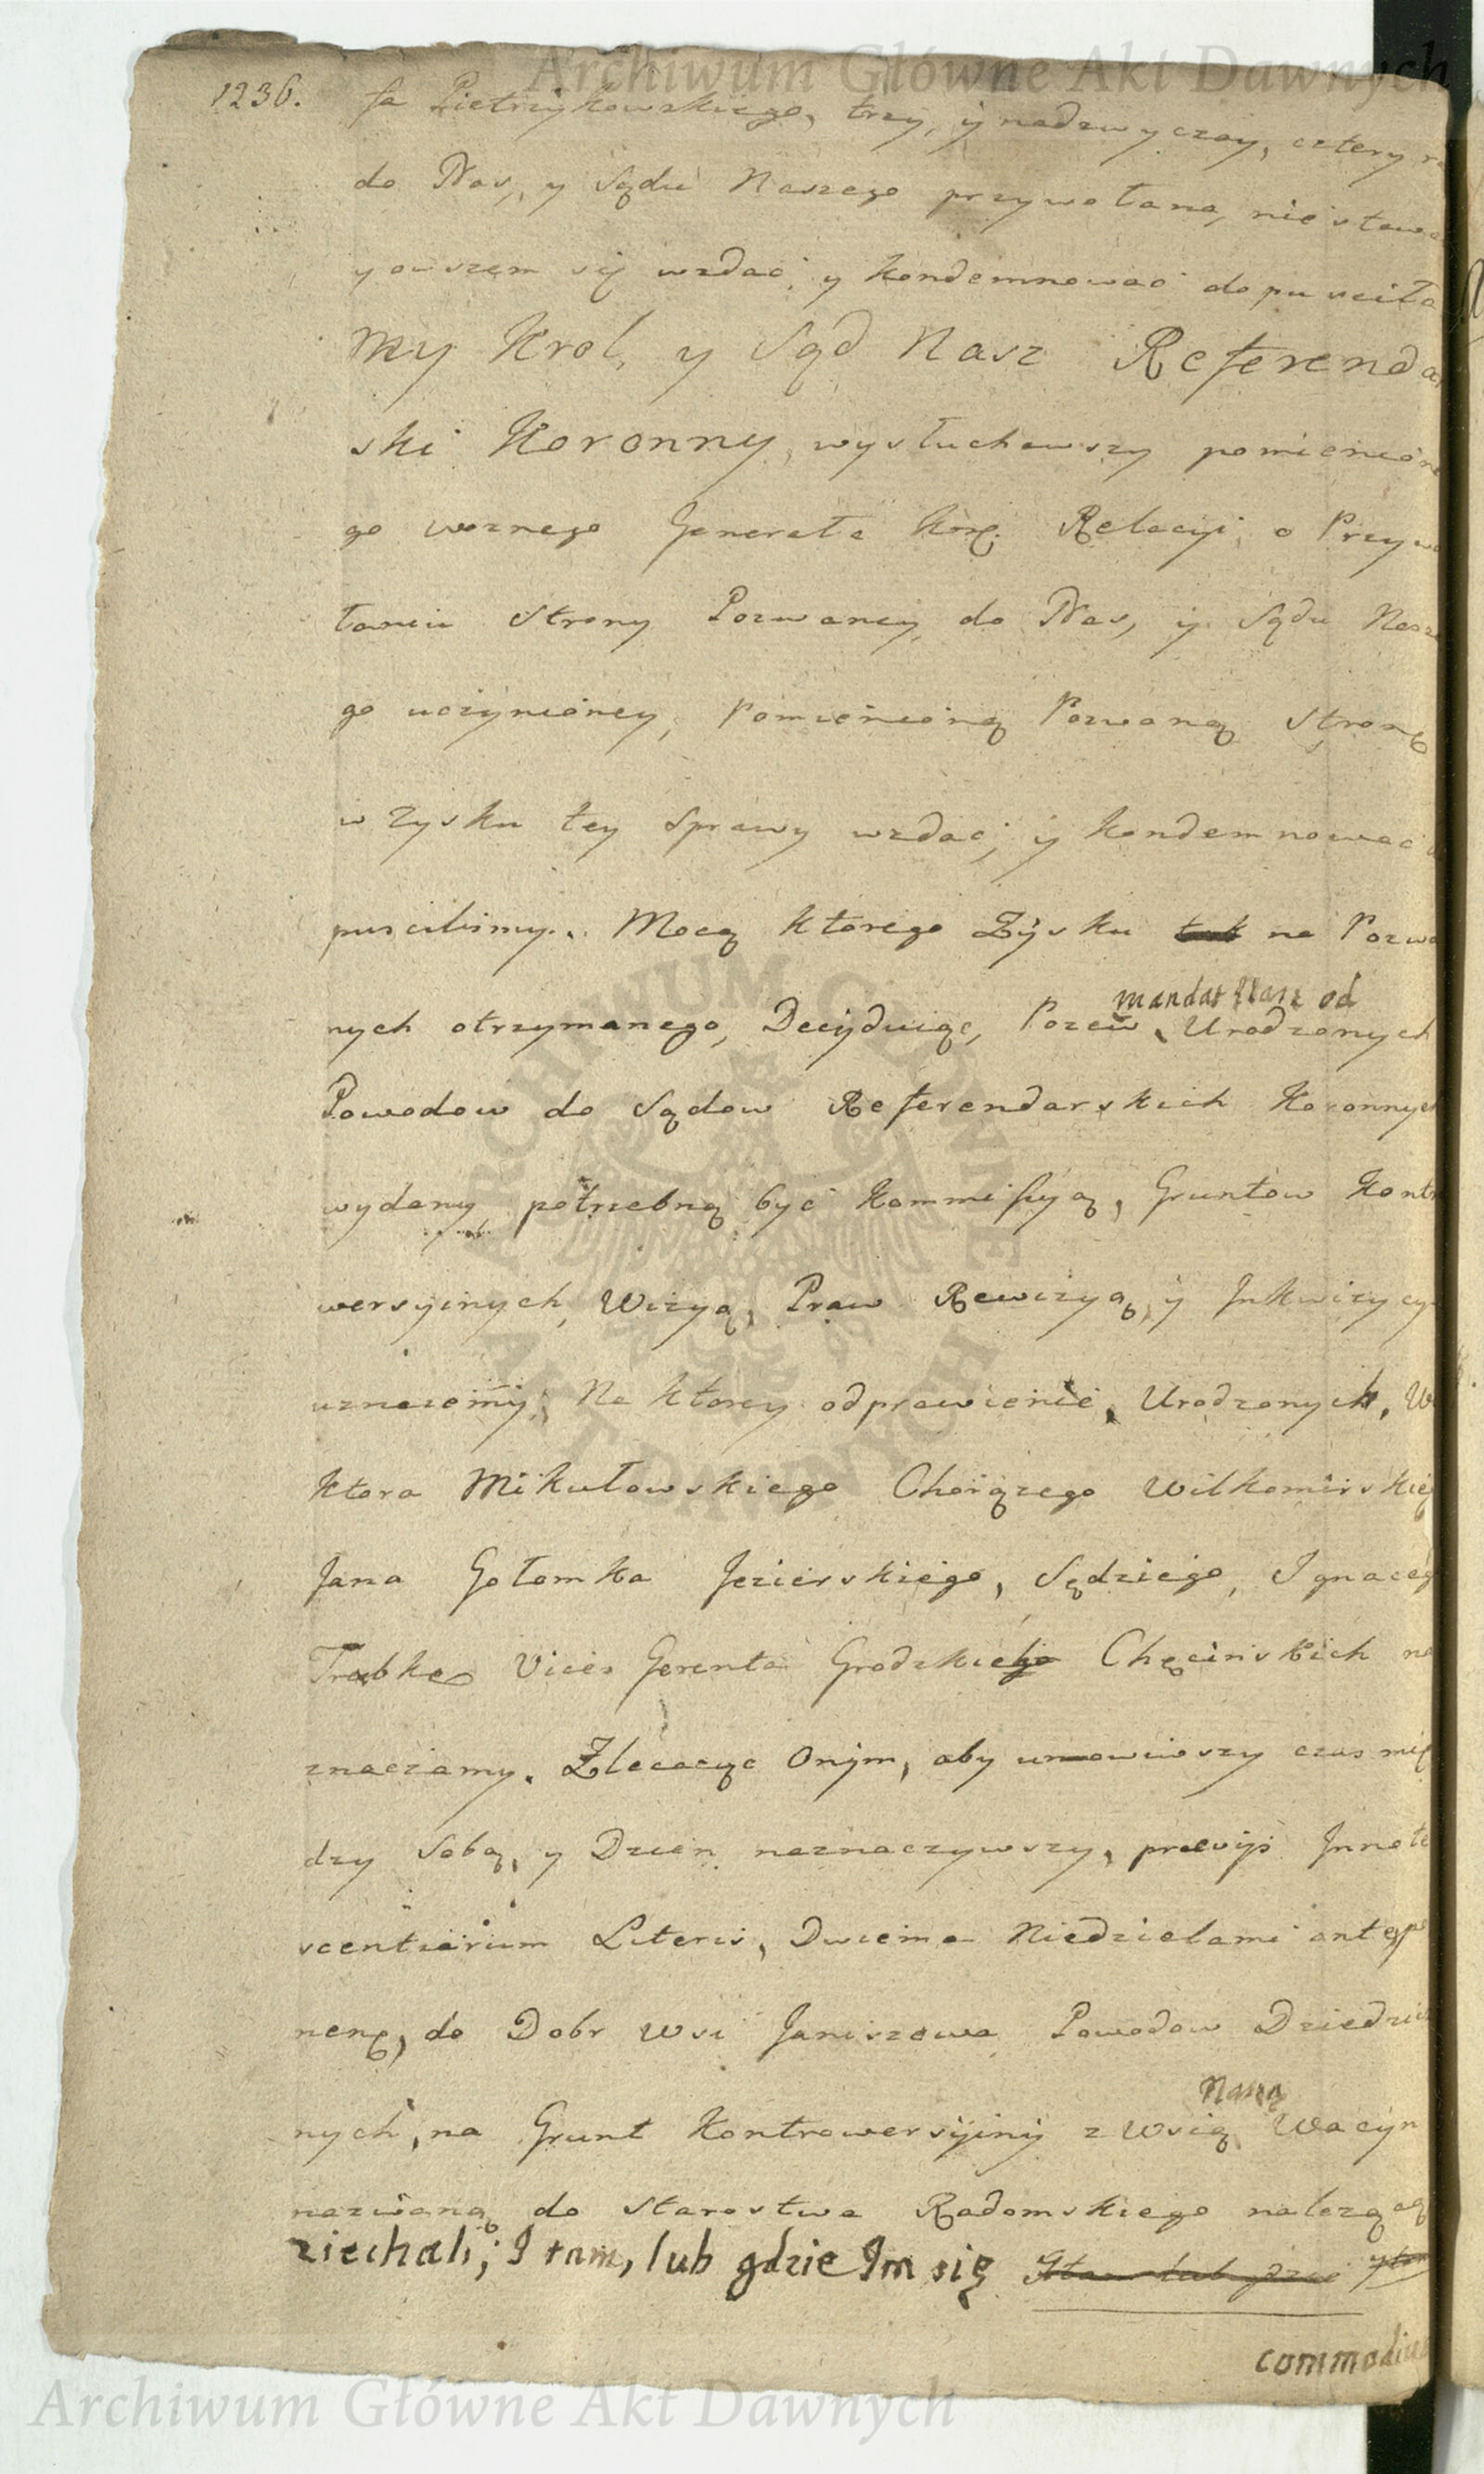 Archiwum Główne Akt Dawnych
1236.
fa Pietrzykowskiego, trzy, y nadzwyczay, cztery ra
do Nas, y Sądu Naszego przywołana, nie stawa
y owszem się wzdać, y kondemnować dopuściła
My Krol, y Sąd Nasz Referendar
ski Koronny, wysłuchawszy pomienione
go woznego Generała Relacyi, o Przywo
łaniu Strony Pozwaney, do Nas, y Sądu Nasze
go uczynioney, Pomienioną Pozwaną Stronę
w Zysku tey Sprawy wzdać, y kondemnować
puscilismy. Mocą ktorego Zysku tak na Pozwa
mandat Nasz od
nych otrzymanego, Decyduiąc, Pozew Urodzonych
Powodow do Sądow Referendarskich Koronnych
wydany potrzebną być Kommissyą, Gruntow Kontr
wersyinych, Wizyą, Praw Rewizyą, y Inkwizycy
uznaiemy; Na ktorey odprawienie, Urodzonych, W
ktora Mikułowskiego Chorązego Wilkomirskieg
Jana Gołomka Jezierskiego, Sędziego, Ignaceg
Trąbke Vices Gerenta Grodzkiego Chęcinskich na
znaczamy. Zlecaiąc Onym, aby umowiwszy czas mię
dzy Sobą, y Dzien naznaczywszy, praevijs Innote
scentiarum Literis, Dwiema Niedzielami
do Dobr Wsi Janiszowa Powodow Dziedzicz
Naszą
nych, na Grunt Kontrowersyiny z Wsią Wacyn
nazwaną do Starostwa Radomskiego nalezącą
ziechali; I tam, lub gdzie Im się
commodius
Archiwum Główne Akt Dawnych
ARCHIWUM GŁÓWNE AKT DAWNYCH